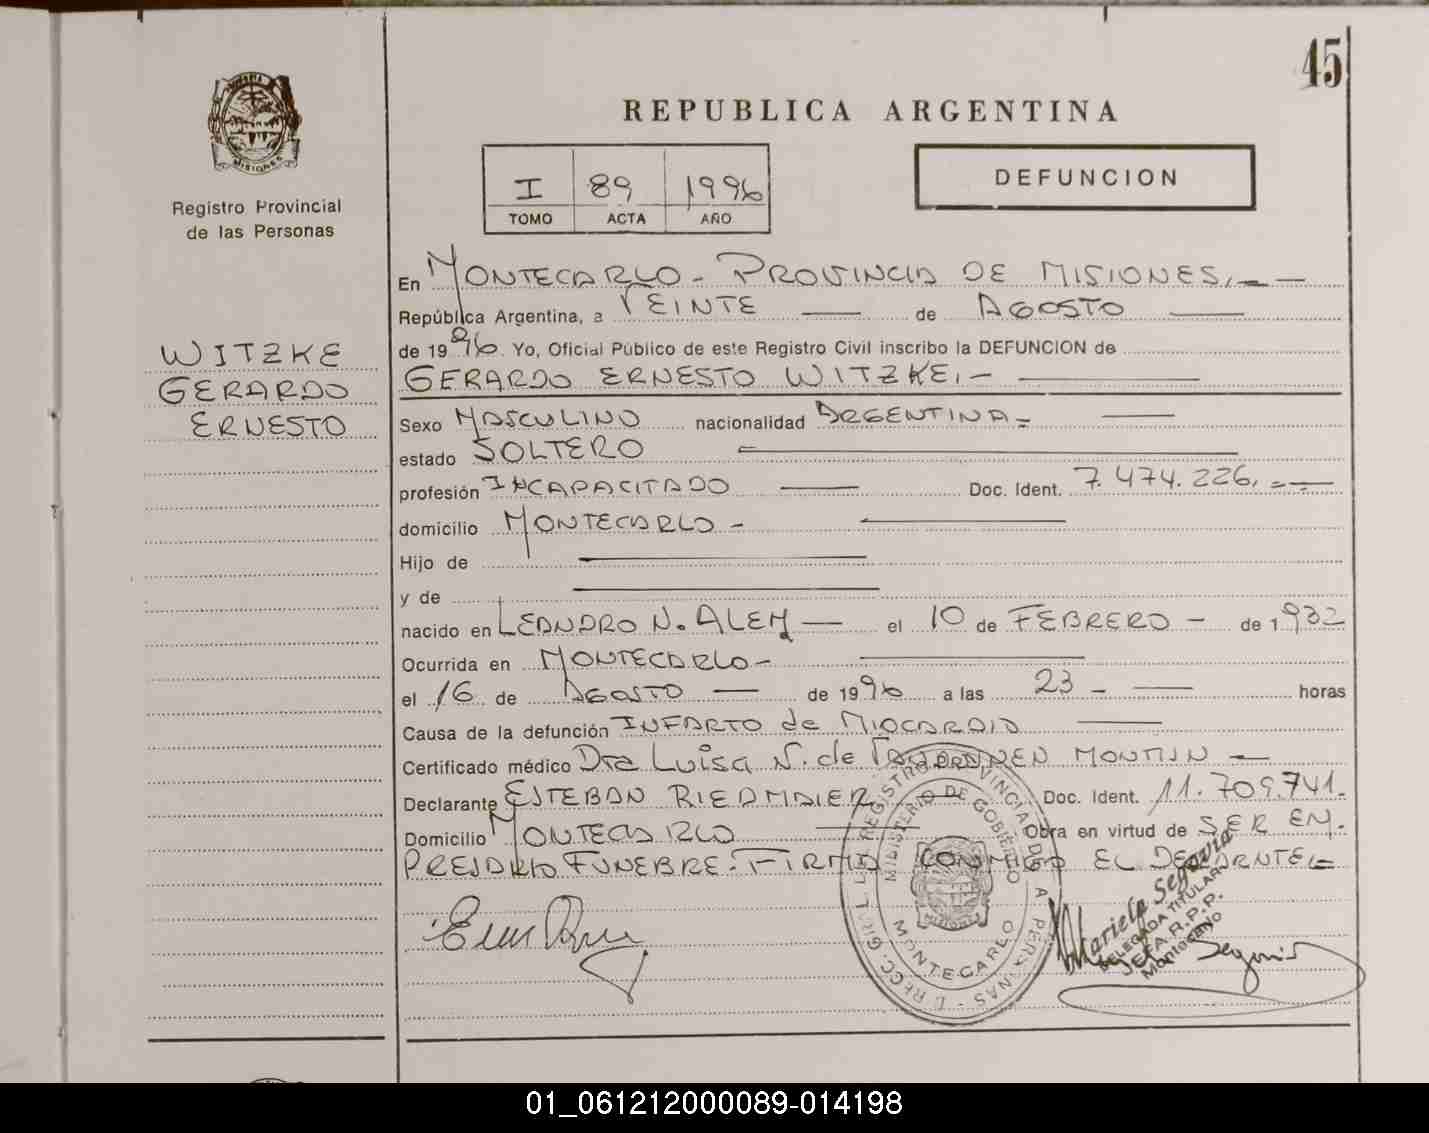 45
REPUBLICA ARGENTINA
MISIONES
Registro Provincial
de las Personas
I 89 1996
TOMO ACTA AÑO
DEFUNCION
WITZKE
GERARDO
ERNESTO
En MONTECARLO - PROVINCIA DE MISIONES.--
República Argentina, a VEINTE — de AGOSTO —
de 1996. Yo, Oficial Público de este Registro Civil inscribo la DEFUNCION de
GERARDO ERNESTO WITZKE.- —
Sexo MASCULINO nacionalidad ARGENTINA= —
estado SOLTERO —
profesión INCAPACITADO — Doc. Ident. 7.474.226.=-
domicilio MONTECARLO - —
Hijo de —
y de —
nacido en LEANDRO N. ALEM — el 10 de FEBRERO - de 1932
Ocurrida en MONTECARLO- —
el 16 de AGOSTO — de 1996 a las 23 - — horas
Causa de la defunción INFARTO de MIOCARDIO —
Certificado médico Dra LUISA N. de MONTIN —
Declarante ESTEBAN RIEDMAIER — Doc. Ident. 11.709.741.
Domicilio MONTECARLO — Obra en virtud de SER EM-
PRESARIO FUNEBRE.-FIRMA CONMIGO EL DECLARANTE.-
REGISTRO PROVINCIAL DE LAS PERSONAS
MINISTERIO DE GOBIERNO
MISIONES
MONTECARLO
Mariela Segovia
DELEGADA TITULAR
JEFA R.P.P.
Montecarlo
01_061212000089-014198